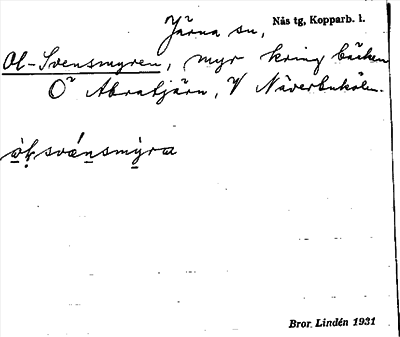 Järna sn, Nås tg, Kopparb. l.
Ol-Svensmyren, myr kring bäcken
Ö Abratjärn, V Näverbukölen.
Bror Lindén 1931